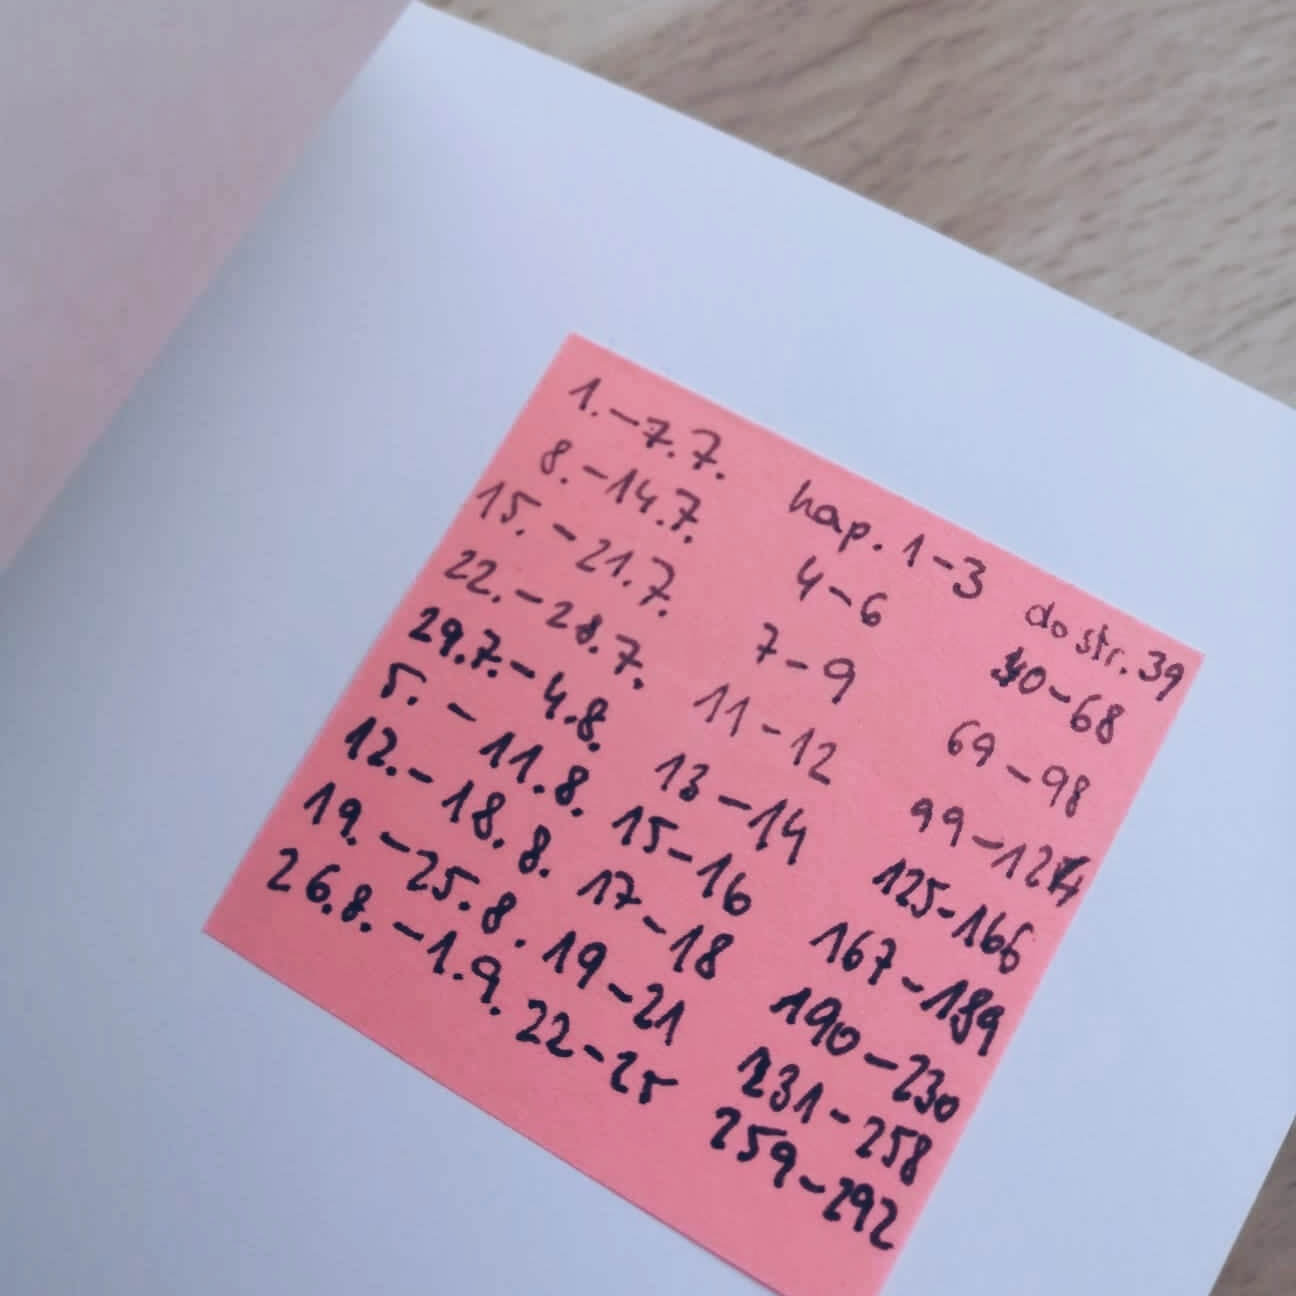 1.-7.7. kap. 1-3 do str. 39
8.-14.7. 4-6 40-68
15.-21.7. 7-9 69-98
22.-28.7. 11-12 99-124
29.7.-4.8. 13-14 125-166
5.-11.8. 15-16 167-189
12.-18.8. 17-18 190-230
19.-25.8. 19-21 231-258
26.8.-1.9. 22-25 259-292